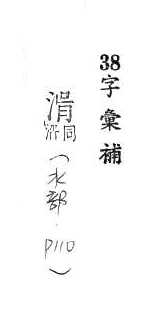 38字彙補
同(水部·P110)